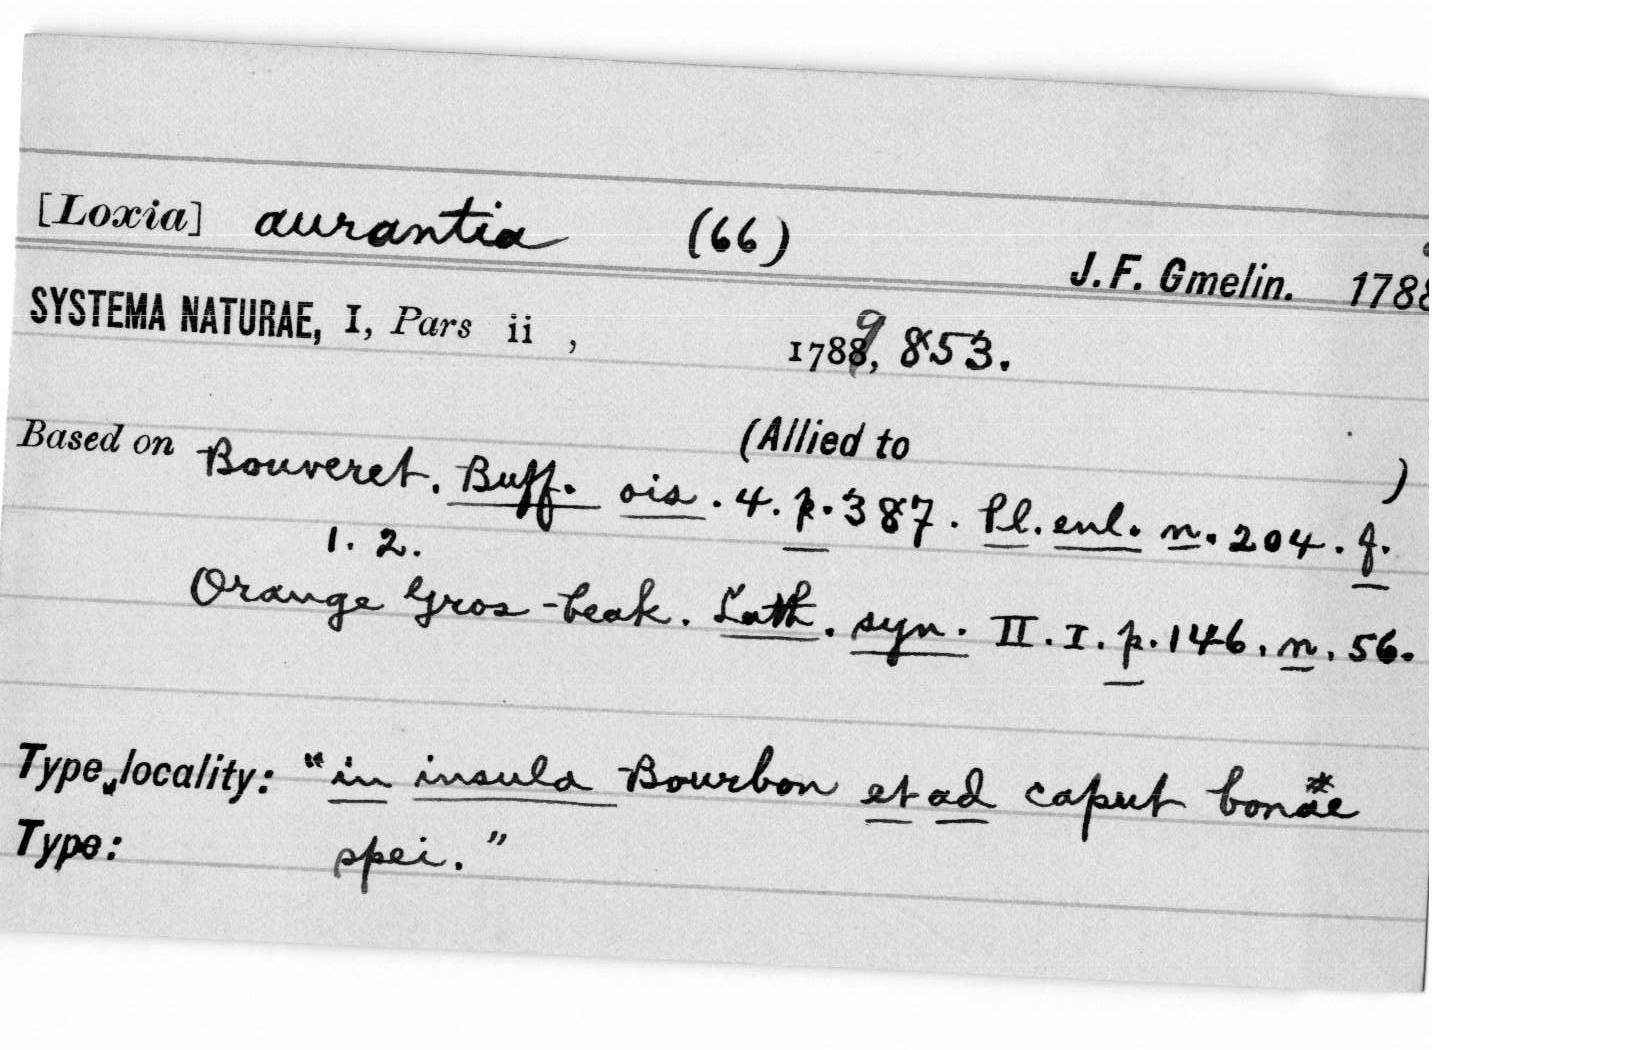 [Loxia] aurantia (66)
J.F. Gmelin. 1788
SYSTEMA NATURAE, I, Pars ii , 1789, 853.
Based on (Allied to )
Bouveret. Buff. ois. 4. p. 387. Pl. enl. n. 204. f.
1. 2.
Orange Gros-beak. Lath. syn. II. I. p. 146. n. 56.
Type locality: "in insula Bourbon et ad caput bonae
Type: spei."